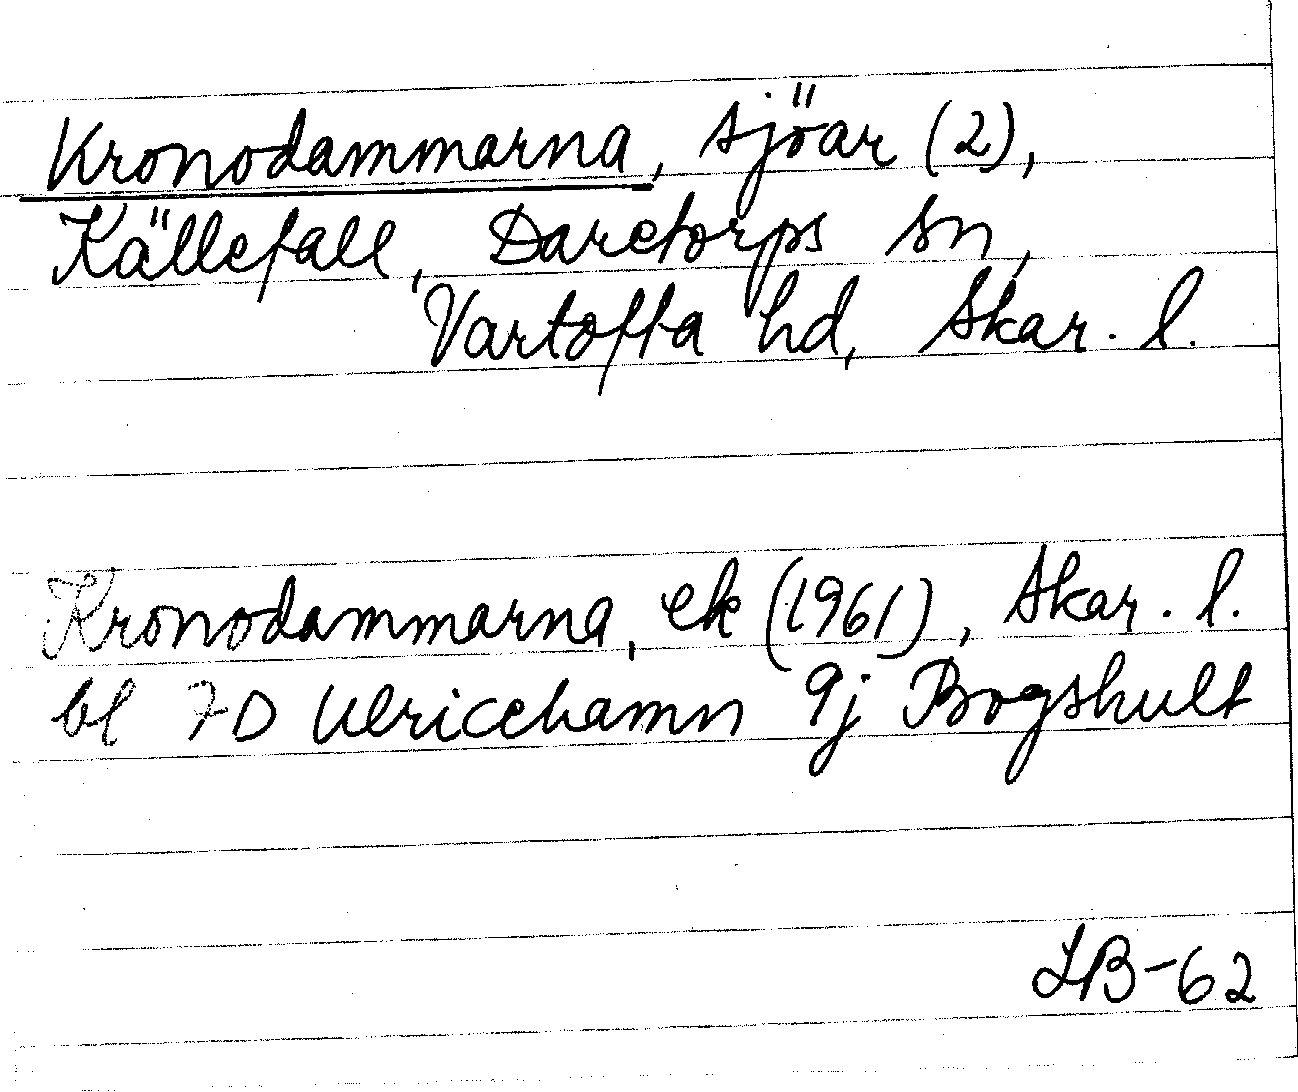 Kronodammarna, sjöar (2),
Källefall, Daretorps sn,
Vartofta hd, Skar. l.
Kronodammarna, ek (1961), Skar. l.
bl 7D Ulricehamn 9j Bogshult
LB-62